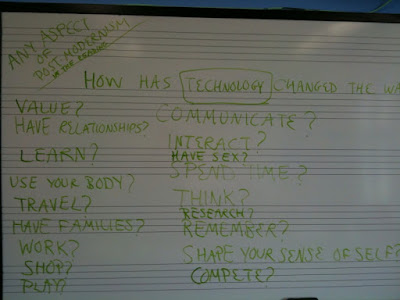 ANY ASPECT
OF
POST MODERNISM
HOW HAS TECHNOLOGY CHANGED THE WA
VALUE?
HAVE RELATIONSHIPS?
LEARN?
USE YOUR BODY?
TRAVEL?
HAVE FAMILIES?
WORK?
SHOP?
PLAY?
COMMUNICATE?
INTERACT?
HAVE SEX?
SPEND TIME?
THINK?
RESEARCH?
REMEMBER?
SHAPE YOUR SENSE OF SELF?
COMPETE?